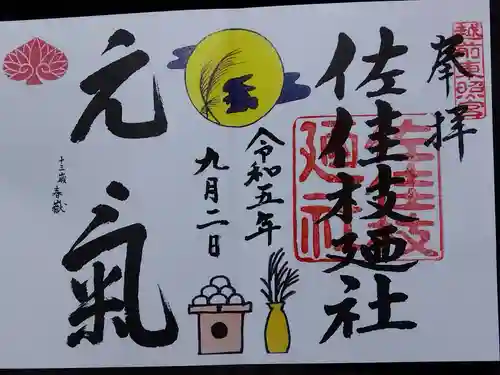 奉拝
越前東照宮
佐佳枝廼社
佐佳枝廼社
令和五年
九月二日
元氣
十三歳 春嶽